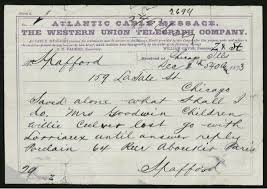 2694
ATLANTIC CABLE MESSAGE.
THE WESTERN UNION TELEGRAPH COMPANY.
Chicago Ills
Dec 2
Spafford
159 LaSalle St
Chicago
Saved alone what shall I
do, Mrs Goodwin Children
Willie Culver lost go with
Lorriaux until answer reply
64 Rue Aboukir Paris
Spafford
29